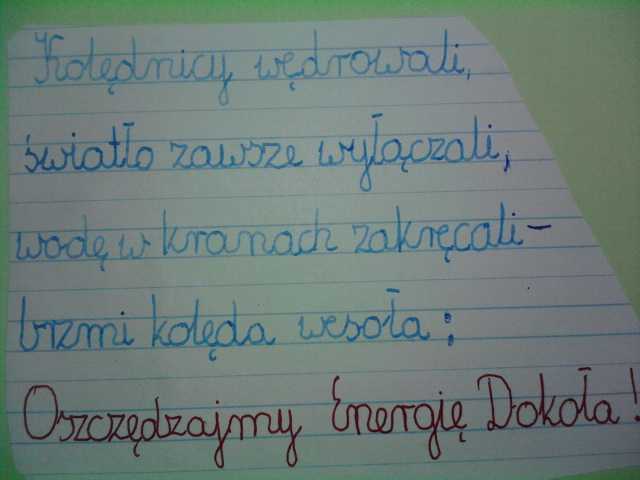 Kolędnicy wędrowali,
światło zawsze wyłączali,
wodę w kranach zakręcali-
brzmi kolęda wesoła:
Oszczędzajmy Energię Dokoła!